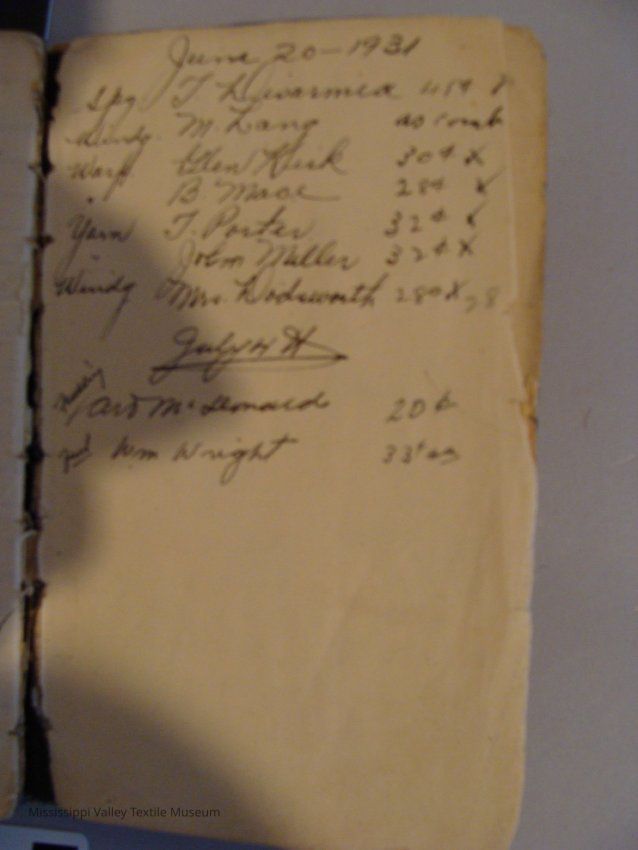 June 20-1931
Spg. T 45¢
Windg. M. Lang as comb
Warp. Glen Kirk 30¢ X
" B. Mace 28¢ X
Yarn T. Porter 32¢ X
" John Miller 32¢ X
Windg Mrs. Dodsworth 28¢ X 28
July
McLeonard 20
Wm Wright 33¢
Mississippi Valley Textile Museum